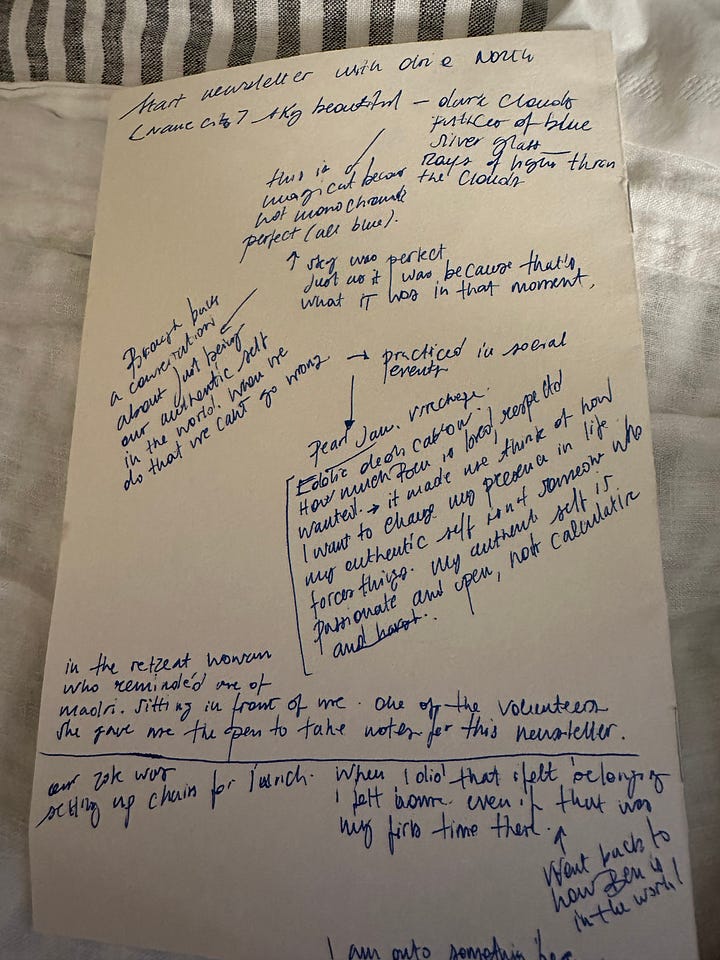 Start newsletter with drive North
(Name city?) sky beautiful – dark clouds
of blue
river glass
Rays of light thron
the clouds
this is
magical becaus
not monochrome
perfect (all blue).
↑ sky was perfect
Just as it was because that's
what it was in that moment,
Brough back
a conversation
about just being
our authentic self
in the world. When we
do that we can't go wrong
→ practiced in social
events
Pearl Jam.
How much Ben is loved, respected
wanted. → it made me think of how
I want to change my presence in life.
my authentic self isn't someone who
forces things. My authentic self is
Passionate and open, not calculative
and harsh..
in the retreat woman
who reminded me of
maori. Sitting in front of me. One of the volunteers
she gave me the pen to take notes for this newsletter.
our was
setting up chairs for lunch. When I did that I felt belonging
I felt home. even if that was
my firts time there.
↑
Went back to
how Ben is
in the world!
I am onto something here